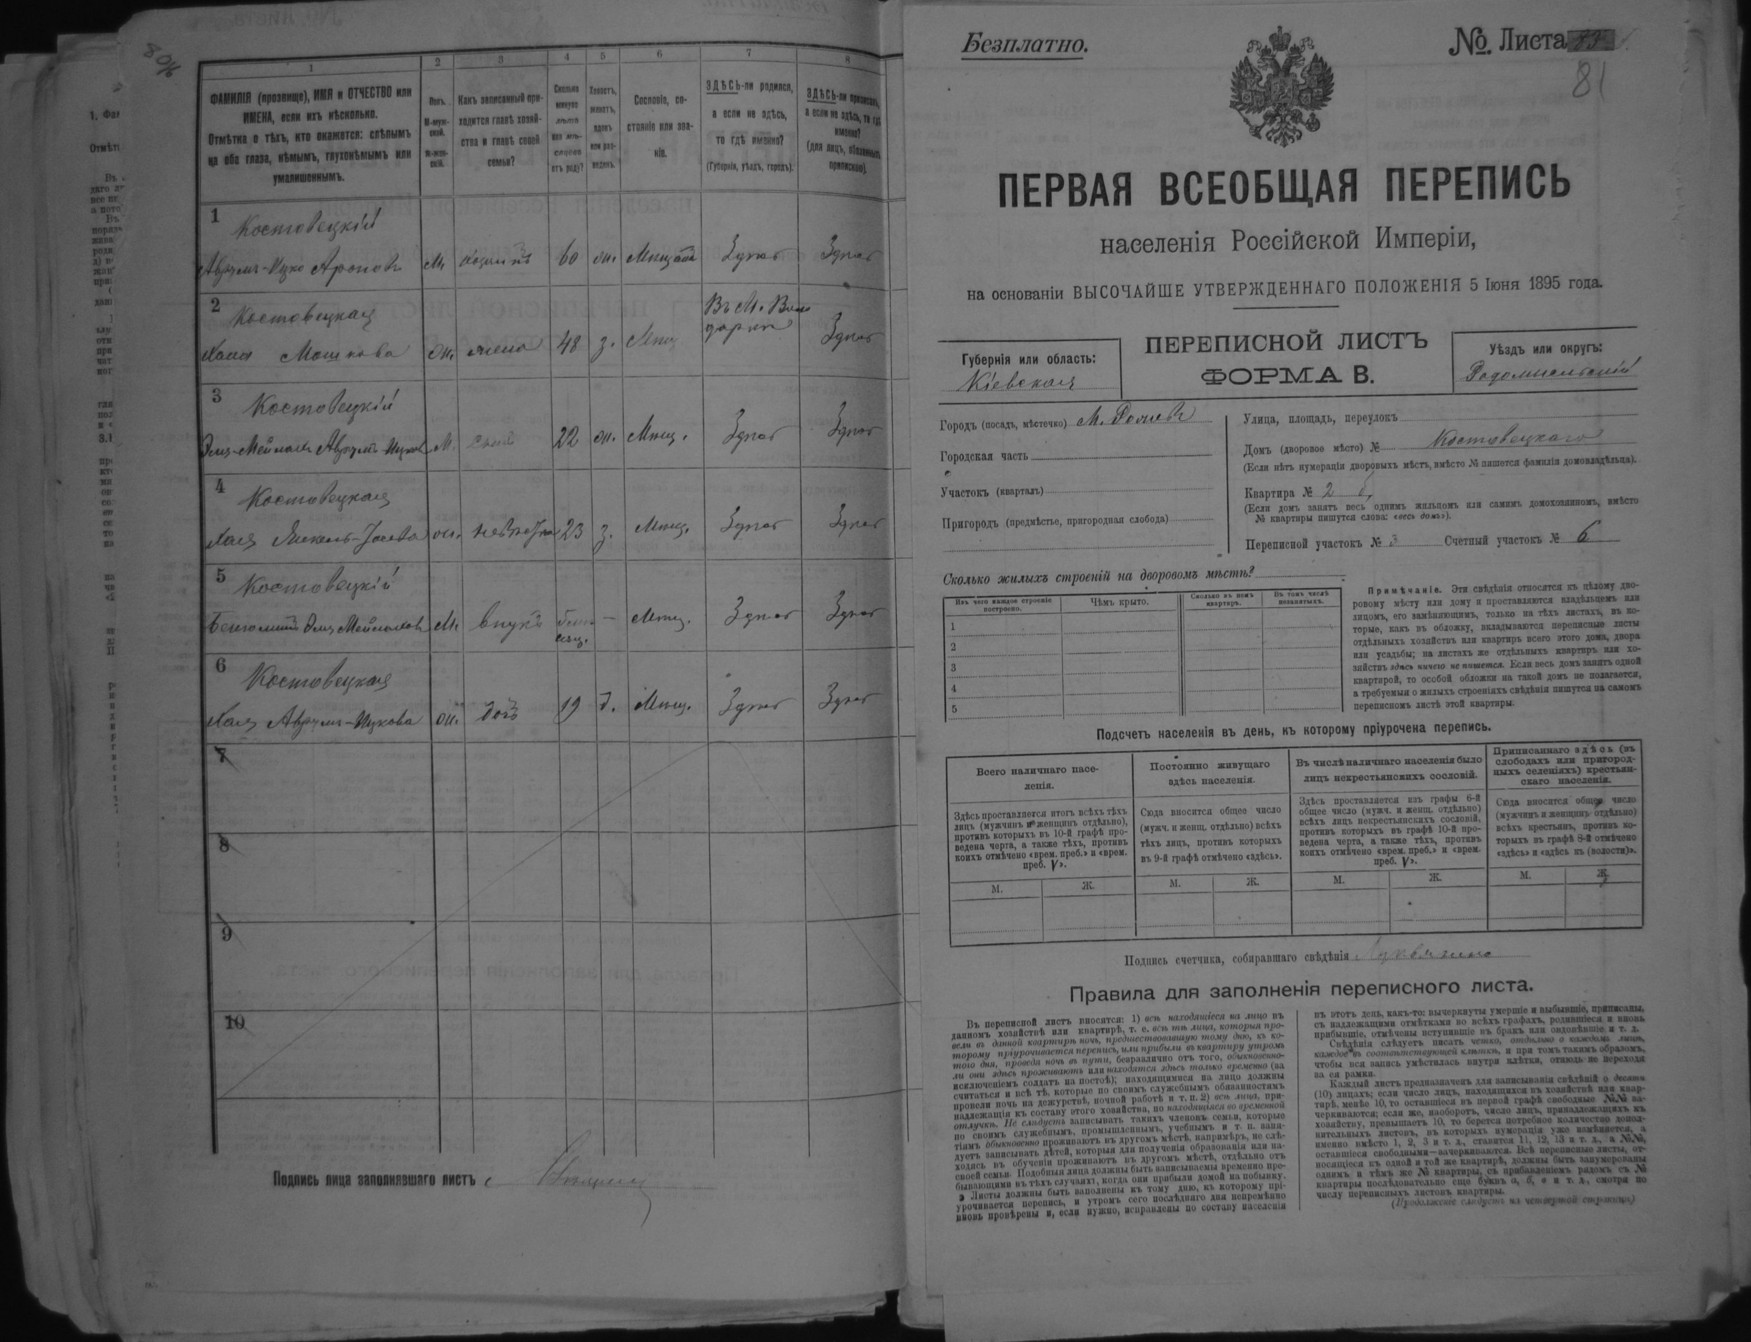 80 об
1 2 3 4 5 6 7 8
ФАМИЛІЯ (прозвище), ИМЯ и ОТЧЕСТВО или
ИМЕНА, если ихъ нѣсколько.
Отмѣтка о тѣхъ, кто окажется: слѣпымъ
на оба глаза, нѣмымъ, глухонѣмымъ или
умалишоннымъ.
Полъ.
М-муж-
ской.
Ж-жен-
скій.
Какъ записанный при-
ходится главѣ хозяй-
ства и главѣ своей
семьи?
Сколько
минуло
лѣтъ
или мѣ-
сяцевъ
отъ роду?
Холостъ,
женатъ,
вдовъ
или раз-
веденъ.
Сословіе, со-
стояніе или зва-
ніе.
ЗДѢСЬ-ли родился,
а если не здѣсь,
то гдѣ именно?
(Губернія, уѣздъ, городъ).
ЗДѢСЬ-ли приписанъ,
а если не здѣсь, то гдѣ
именно?
(для лицъ, обязанныхъ
припискою).
1 Костовецкій
Аврумъ-Ицко Ароновъ М. хозяинъ 60 ж. Мѣщан. Здѣсь Здѣсь
2 Костовецкая
Хана Мошкова ж. жена 48 з. Мѣщ. Здѣсь
3 Костовецкій
Аврумъ-Ицковъ М. сынъ 22 ж. Мѣщ. Здѣсь Здѣсь
4 Костовецкая
Хая ж. невѣстка 23 з. Мѣщ. Здѣсь Здѣсь
5 Костовецкій
М. внукъ — Мѣщ. Здѣсь Здѣсь
6 Костовецкая
Хая Аврумъ-Ицкова ж. дочь 19 д. Мѣщ. Здѣсь Здѣсь
7
8
9
10
Подпись лица заполнявшаго листъ
Безплатно.
№. Листа
81
ПЕРВАЯ ВСЕОБЩАЯ ПЕРЕПИСЬ
населенія Россійской Имперіи,
на основаніи ВЫСОЧАЙШЕ УТВЕРЖДЕННАГО ПОЛОЖЕНІЯ 5 Іюня 1895 года.
Губернія или область:
Кіевская
ПЕРЕПИСНОЙ ЛИСТЪ
ФОРМА В.
Уѣздъ или округъ:
Радомысльскій
Городъ (посадъ, мѣстечко) М.
Городская часть
Участокъ (кварталъ)
Пригородъ (предмѣстье, пригородная слобода)
Улица, площадь, переулокъ
Домъ (дворовое мѣсто) № Костовецкаго
(Если нѣтъ нумераціи дворовыхъ мѣстъ, вмѣсто № пишется фамилія домовладѣльца).
Квартира № 2
(Если домъ занятъ весь однимъ жильцомъ или самимъ домохозяиномъ, вмѣсто
№ квартиры пишутся слова: «весь домъ»).
Переписной участокъ № 3 Счетный участокъ № 6
Сколько жилыхъ строеній на дворовомъ мѣстѣ?
Изъ чего каждое строеніе
построено.
Чѣмъ крыто.
Сколько въ немъ
квартиръ.
Въ томъ числѣ
незанятыхъ.
1
2
3
4
5
Примѣчаніе. Эти свѣдѣнія относятся къ цѣлому дво-
ровому мѣсту или дому и проставляются владѣльцемъ или
лицомъ, его замѣняющимъ, только на тѣхъ листахъ, въ ко-
торые, какъ въ обложку, вкладываются переписные листы
отдѣльныхъ хозяйствъ или квартиръ всего этого дома, двора
или усадьбы; на листахъ же отдѣльныхъ квартиръ или хо-
зяйствъ здѣсь ничего не пишется. Если весь домъ занятъ одной
квартирой, то особой обложки на такой домъ не полагается,
а требуемыя о жилыхъ строеніяхъ свѣдѣнія пишутся на самомъ
переписномъ листѣ этой квартиры.
Подсчетъ населенія въ день, къ которому пріурочена перепись.
Всего наличнаго насе-
ленія.
Постоянно живущаго
здѣсь населенія.
Въ числѣ наличнаго населенія было
лицъ некрестьянскихъ сословій.
Приписаннаго здѣсь (въ
слободахъ или пригород-
ныхъ селеніяхъ) крестьян-
скаго населенія.
Здѣсь проставляется итогъ всѣхъ тѣхъ
лицъ (мужчинъ и женщинъ отдѣльно),
противъ которыхъ въ 10-й графѣ про-
ведена черта, а также тѣхъ, противъ
коихъ отмѣчено «врем. преб.» и «врем.
преб. V».
Сюда вносится общее число
(мужч. и женщ. отдѣльно) всѣхъ
тѣхъ лицъ, противъ которыхъ
въ 9-й графѣ отмѣчено «здѣсь».
Здѣсь проставляется изъ графы 6-й
общее число (мужч. и женщ. отдѣльно)
всѣхъ лицъ некрестьянскихъ сословій,
противъ которыхъ въ графѣ 10-й про-
ведена черта, а также тѣхъ, противъ
коихъ отмѣчено «врем. преб.» и «врем.
преб. V».
Сюда вносится общее число
(мужчинъ и женщинъ отдѣльно)
всѣхъ крестьянъ, противъ ко-
торыхъ въ графѣ 8-й отмѣчено
«здѣсь» и «здѣсь къ (волости)».
М. Ж. М. Ж. М. Ж. М. Ж.
Подпись счетчика, собиравшаго свѣдѣнія
Правила для заполненія переписного листа.
Въ переписной листъ вносятся: 1) всѣ находящіеся на лицо въ
данномъ хозяйствѣ или квартирѣ, т. е. всѣ тѣ лица, которыя про-
вели въ данной квартирѣ ночь, предшествовавшую тому дню, къ ко-
торому пріурочивается перепись, или прибыли въ квартиру утромъ
того дня, проведя ночь въ пути, безразлично отъ того, обыкновенно-
ли они здѣсь проживаютъ или находятся здѣсь только временно (за
исключеніемъ солдатъ на постоѣ); находящимися на лицо должны
считаться и всѣ тѣ, которые по своимъ служебнымъ обязанностямъ
провели ночь на дежурствѣ, ночной работѣ и т. п. 2) всѣ лица, при-
надлежащія къ составу этого хозяйства, но находящіяся во временной
отлучкѣ. Не слѣдуетъ записывать такихъ членовъ семьи, которые
по своимъ служебнымъ, промышленнымъ, учебнымъ и т. п. заня-
тіямъ обыкновенно проживаютъ въ другомъ мѣстѣ, напримѣръ, не слѣ-
дуетъ записывать дѣтей, которыя для полученія образованія или на-
ходясь въ обученіи проживаютъ въ другомъ мѣстѣ, отдѣльно отъ
своей семьи. Подобныя лица должны быть записываемы временно пре-
бывающими въ тѣхъ случаяхъ, когда они прибыли домой на побывку.
Листы должны быть заполнены къ тому дню, къ которому прі-
урочивается перепись, и утромъ сего послѣдняго дня непремѣнно
вновь провѣрены и, если нужно, исправлены по составу населенія
въ этотъ день, какъ-то: вычеркнуты умершіе и выбывшіе, приписаны,
съ надлежащими отмѣтками во всѣхъ графахъ, родившіеся и вновь
прибывшіе, отмѣчены вступившіе въ бракъ или овдовѣвшіе и т. д.
Свѣдѣнія слѣдуетъ писать четко, отдѣльно о каждомъ лицѣ,
каждое въ соотвѣтствующей клѣткѣ, и при томъ такимъ образомъ,
чтобы вся запись умѣстилась внутри клѣтки, отнюдь не переходя
за ея рамки.
Каждый листъ предназначенъ для записыванія свѣдѣній о десяти
(10) лицахъ; если число лицъ, находящихся въ хозяйствѣ или квар-
тирѣ, менѣе 10, то оставшіеся въ первой графѣ свободные №№ за-
черкиваются; если же, наоборотъ, число лицъ, принадлежащихъ къ
хозяйству, превышаетъ 10, то берется потребное количество допол-
нительныхъ листовъ, въ которыхъ нумерація уже измѣняется, а
именно вмѣсто 1, 2, 3 и т. д., ставится 11, 12, 13 и т. д., а №№,
оставшіеся свободными—зачеркиваются. Всѣ переписные листы, от-
носящіеся къ одной и той же квартирѣ, должны быть занумерованы
однимъ и тѣмъ же № квартиры, съ прибавленіемъ рядомъ съ №
квартиры послѣдовательно еще буквъ а, б, в и т. д., смотря по
числу переписныхъ листовъ квартиры.
(Продолженіе слѣдуетъ на четвертой страницѣ)